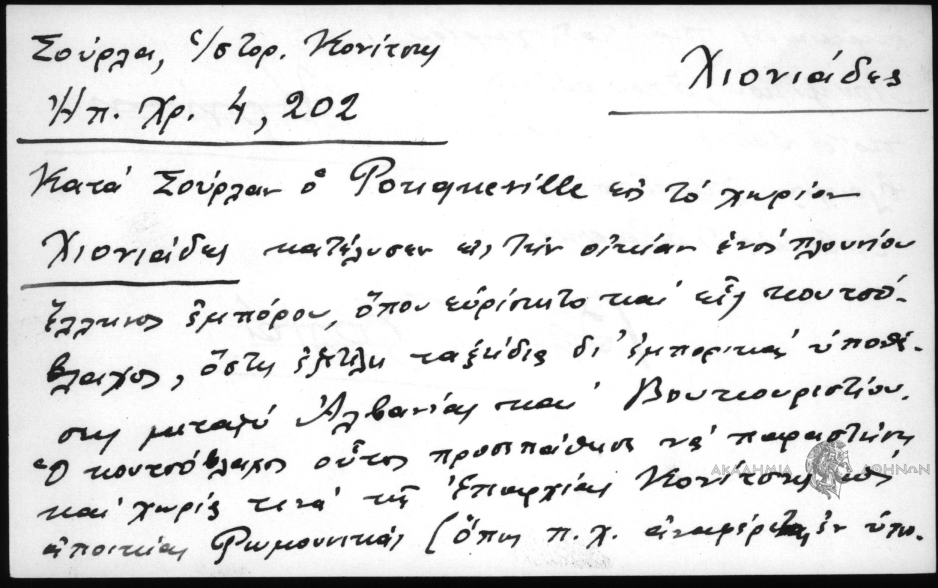 Σούρλα, ἱστορ. Κονίτσης
Χιονιάδες
Ἠπ. Χρ. 4, 202
Κατά Σούρλαν ὁ Pouqueville εἰς τό χωρίον
Χιονιάδες κατέλυσεν εἰς τήν οἰκίαν ἑνός πλουσίου
ἕλληνος ἐμπόρου, ὅπου εὑρίσκετο καί εἷς κουτσό-
βλαχος, ὅστις ἐξετέλει ταξείδια δι' ἐμπορικάς ὑποθέ-
σεις μεταξύ Ἀλβανίας καί Βουκουρεστίου.
Ὁ κουτσόβλαχος οὗτος προσεπάθησε νά παραστήσῃ
ΑΚΑΔΗΜΙΑ ΑΘΗΝΩΝ
καί χωρία τινά τῆς ἐπαρχίας Κονίτσης ὡς
ἀποικίας Ρωμουνικάς (ὅπως π.χ. ἀναφέρεται ἐν ὑπο-